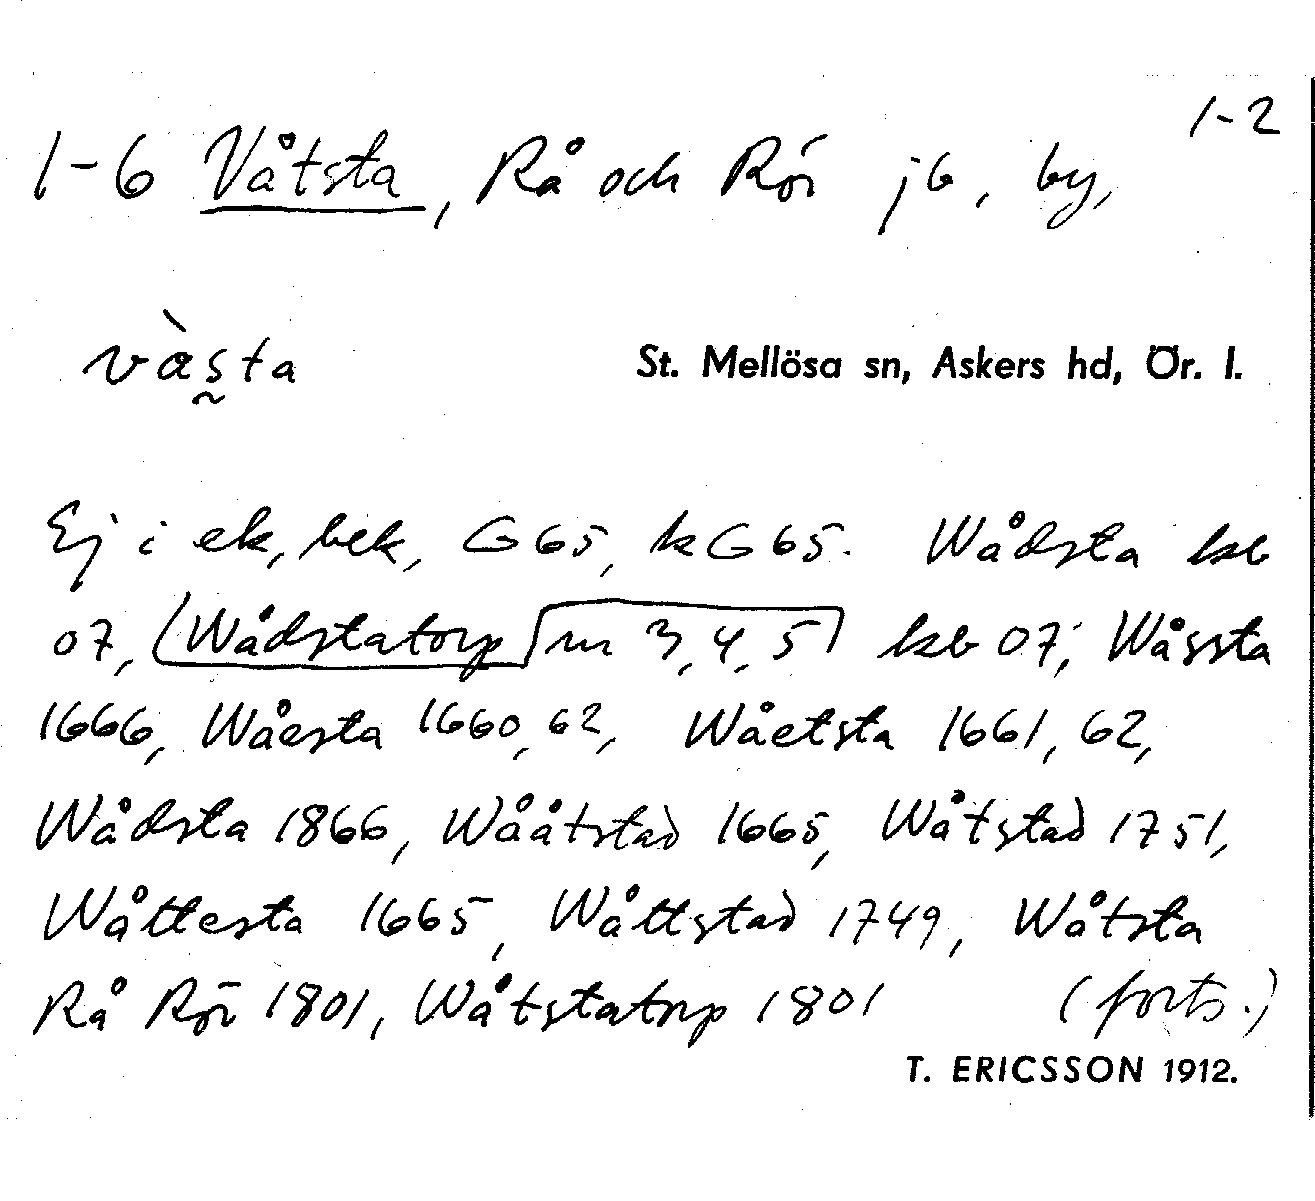 1-2
1-6 Våtsta, Rå och Rör jb, by,
vàsta
St. Mellösa sn, Askers hd, Ör. l.
Ej i ek, bek, G65, kG65. Wådsta kb
07, (Wådstatorp m 3,4,5) kb 07; Wåssta
1666, Wåesta 1660,62, Wåetsta 1661, 62,
Wådsta 1866, Wååtstad 1665, Wåtstad 1751,
Wåttesta 1665, Wåttstad 1749, Wåtsta
Rå Rör 1801, Wåtstatorp 1801 (forts.)
T. ERICSSON 1912.